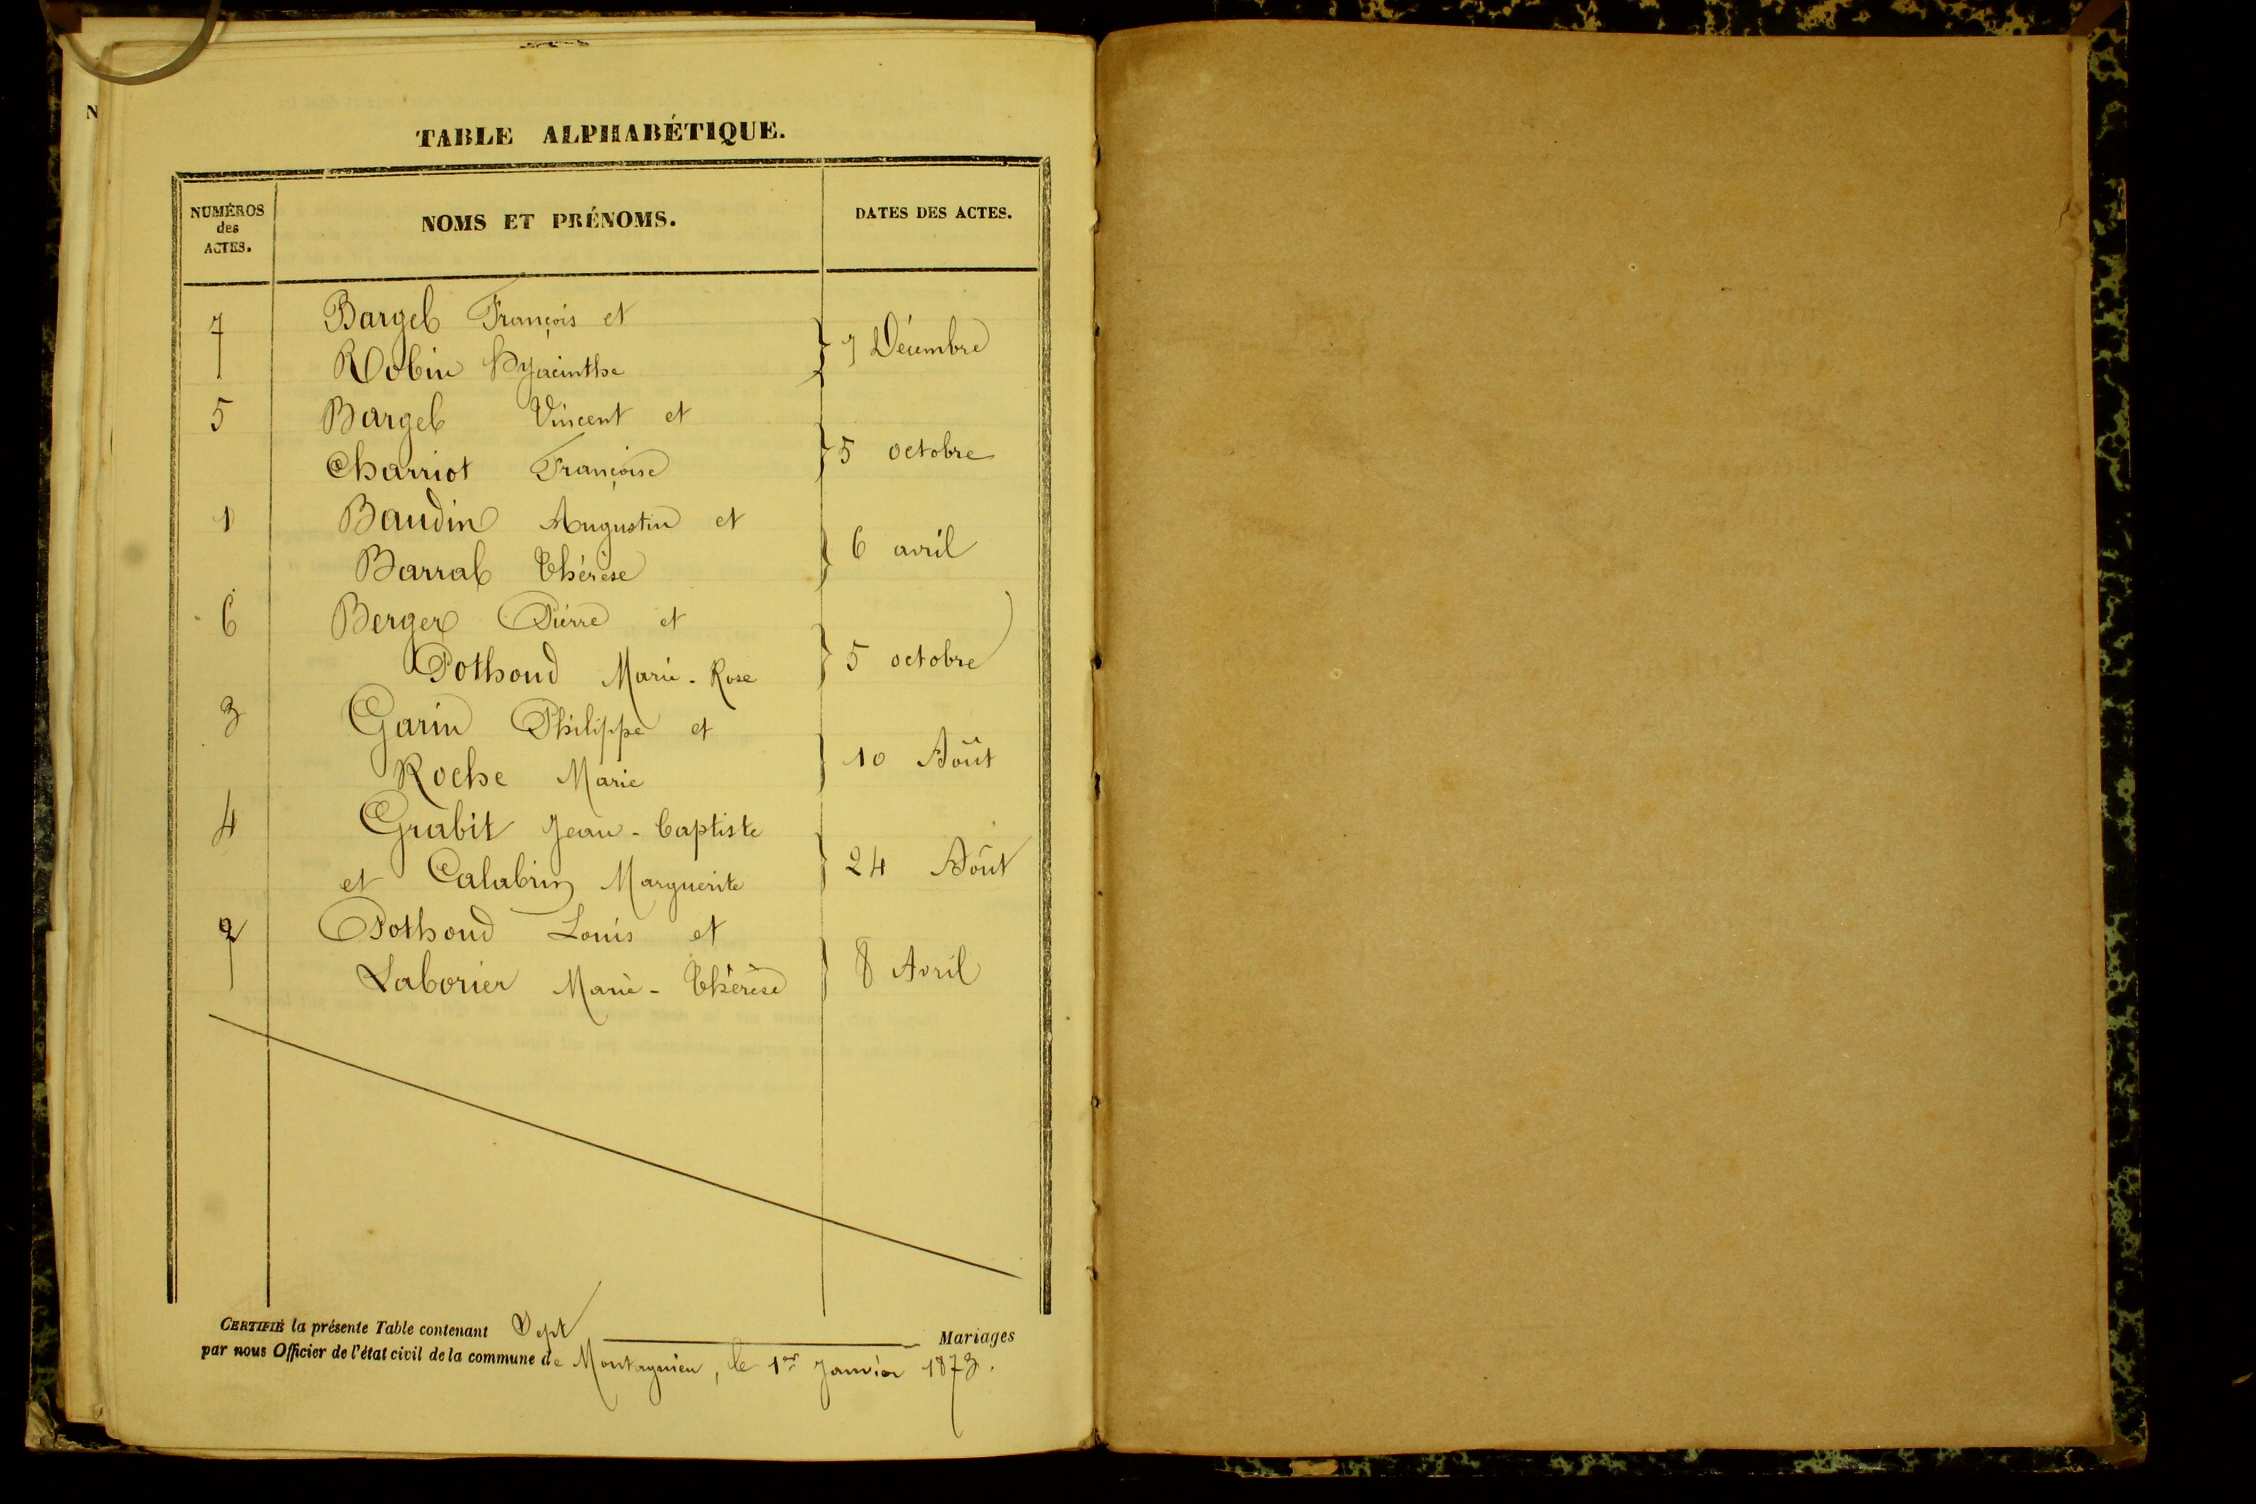 N
TABLE ALPHABÉTIQUE.
NUMÉROS des ACTES.
NOMS ET PRÉNOMS.
DATES DES ACTES.
7 Bargel François et
Robin Hyacinthe } 7 Décembre
5 Bargel Vincent et
Charriot Françoise } 5 octobre
1 Baudin Augustin et
Barral Thérèse } 6 avril
6 Berger Pierre et
Pothoud Marie-Rose } 5 octobre
3 Garin Philippe et
Roche Marie } 10 Août
4 Grabit Jean-baptiste
et Calabrin Marguerite } 24 Août
2 Pothoud Louis et
Laborier Marie-Thérèse } 8 Avril
CERTIFIÉ la présente Table contenant Sept Mariages
par nous Officier de l'état civil de la commune de Montagnieu, le 1er Janvier 1873.